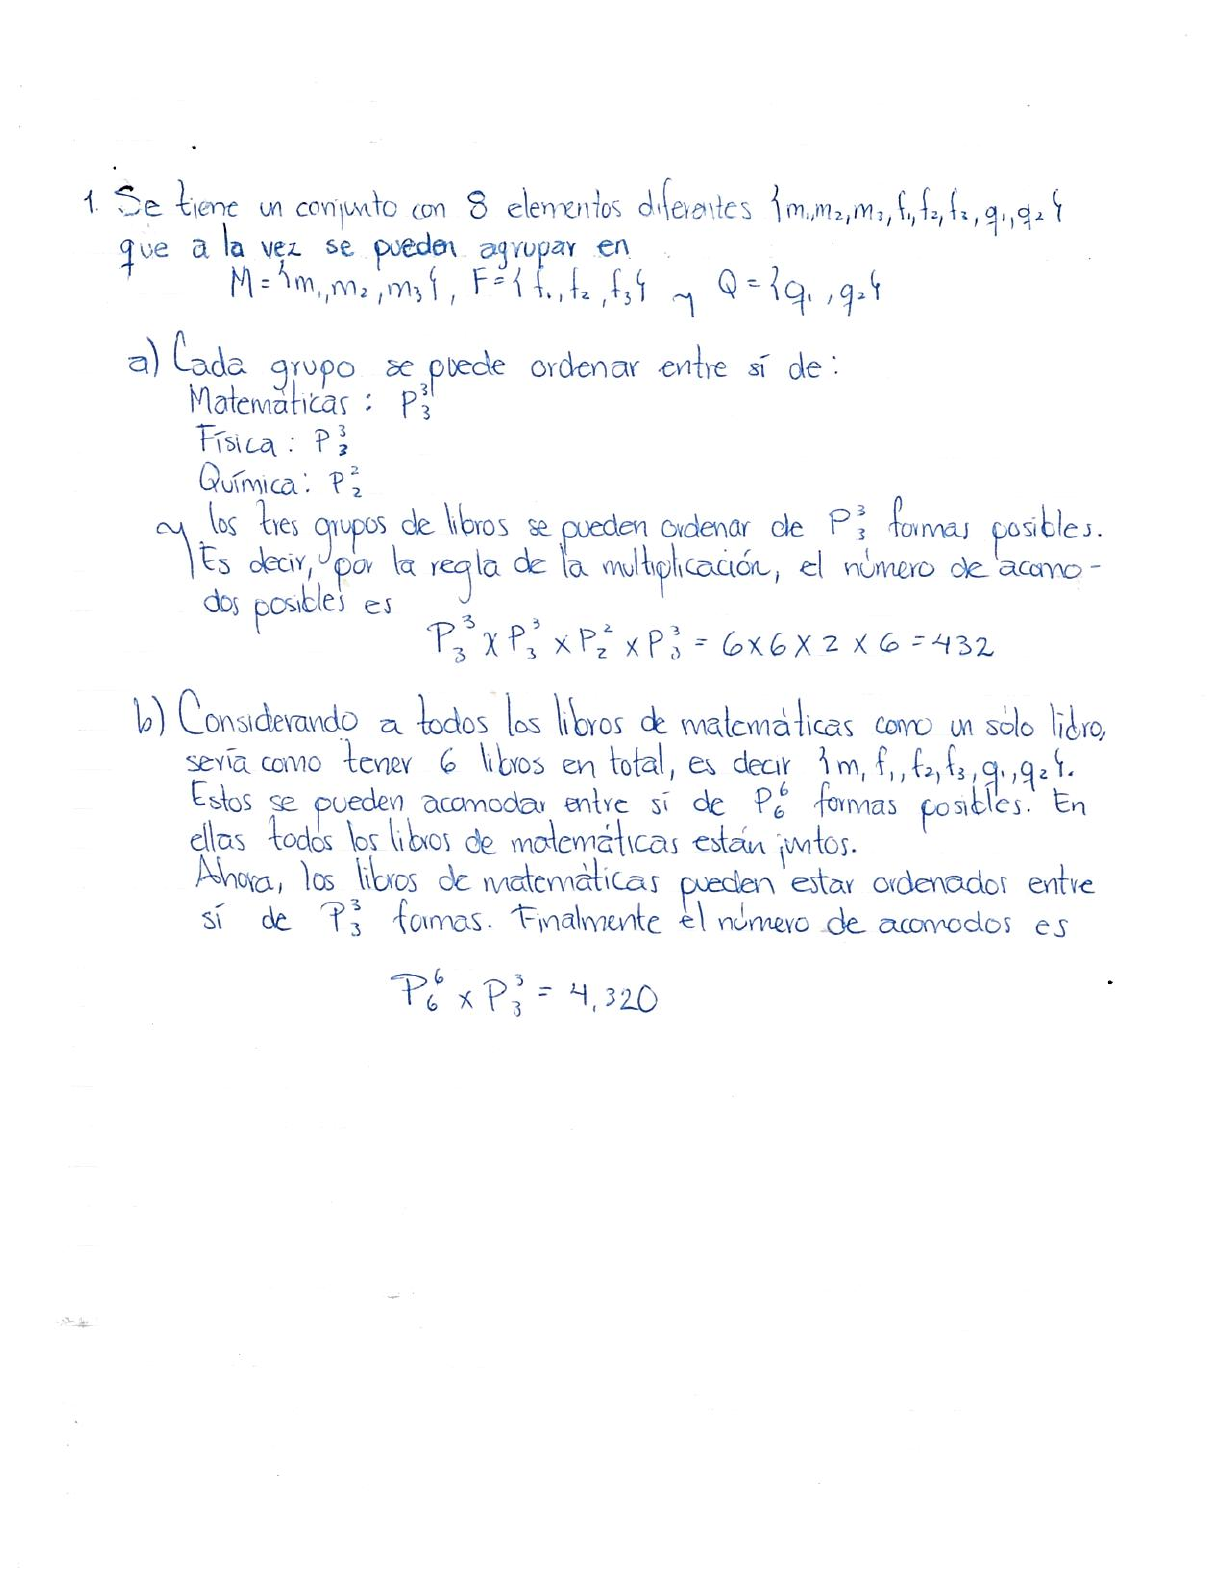 1. Se tiene un conjunto con 8 elementos diferentes {m₁,m₂,m₃,f₁,f₂,f₃,q₁,q₂}
que a la vez se pueden agrupar en
M={m₁,m₂,m₃}, F={f₁,f₂,f₃} y Q={q₁,q₂}
a) Cada grupo se puede ordenar entre sí de:
Matemáticas: P₃³
Física: P₃³
Química: P₂²
y los tres grupos de libros se pueden ordenar de P₃³ formas posibles.
Es decir, por la regla de la multiplicación, el número de acomo-
dos posibles es
P₃³ x P₃³ x P₂² x P₃³ = 6x6x2x6=432
b) Considerando a todos los libros de matemáticas como un sólo libro,
sería como tener 6 libros en total, es decir {m, f₁,f₂,f₃,q₁,q₂}.
Estos se pueden acomodar entre sí de P₆⁶ formas posibles. En
ellas todos los libros de matemáticas están juntos.
Ahora, los libros de matemáticas pueden estar ordenados entre
sí de P₃³ formas. Finalmente el número de acomodos es
P₆⁶ x P₃³ = 4,320